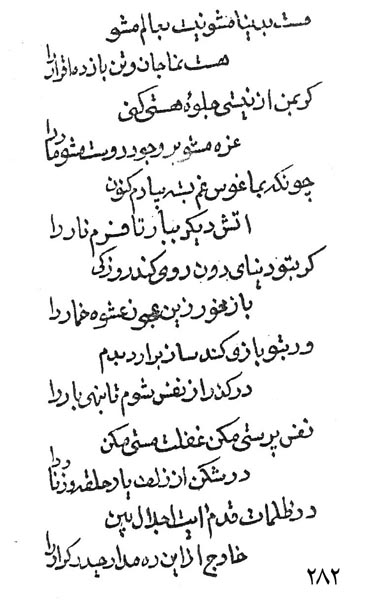 مست ببینا مشو نیت بعالم مشو
هست نما جان و تن باز ده اقرار را
کر بمن از نیستی جلوهٔ هستی کنی
غره مشو بر وجود دوست مشو مار را
چونکه بما غوس غم بسته بیادم کنون
اتش دیکر بیار تا فرم نار را
کر بتو دنیای دون روی کند روزکی
باز مخور زین عجوز عشوه خمار را
ور بتو بازو کند ساز برارد بدم
درکذر از نفس شوم تا بنهی بار را
نفس پرستی مکن غفلت مستی مکن
در شکن از زلف یار حلقه و زنار را
در ظلمات قدم ایت اجلال بین
خارج از این ره مدار حیدر کرار را
۲۸۲